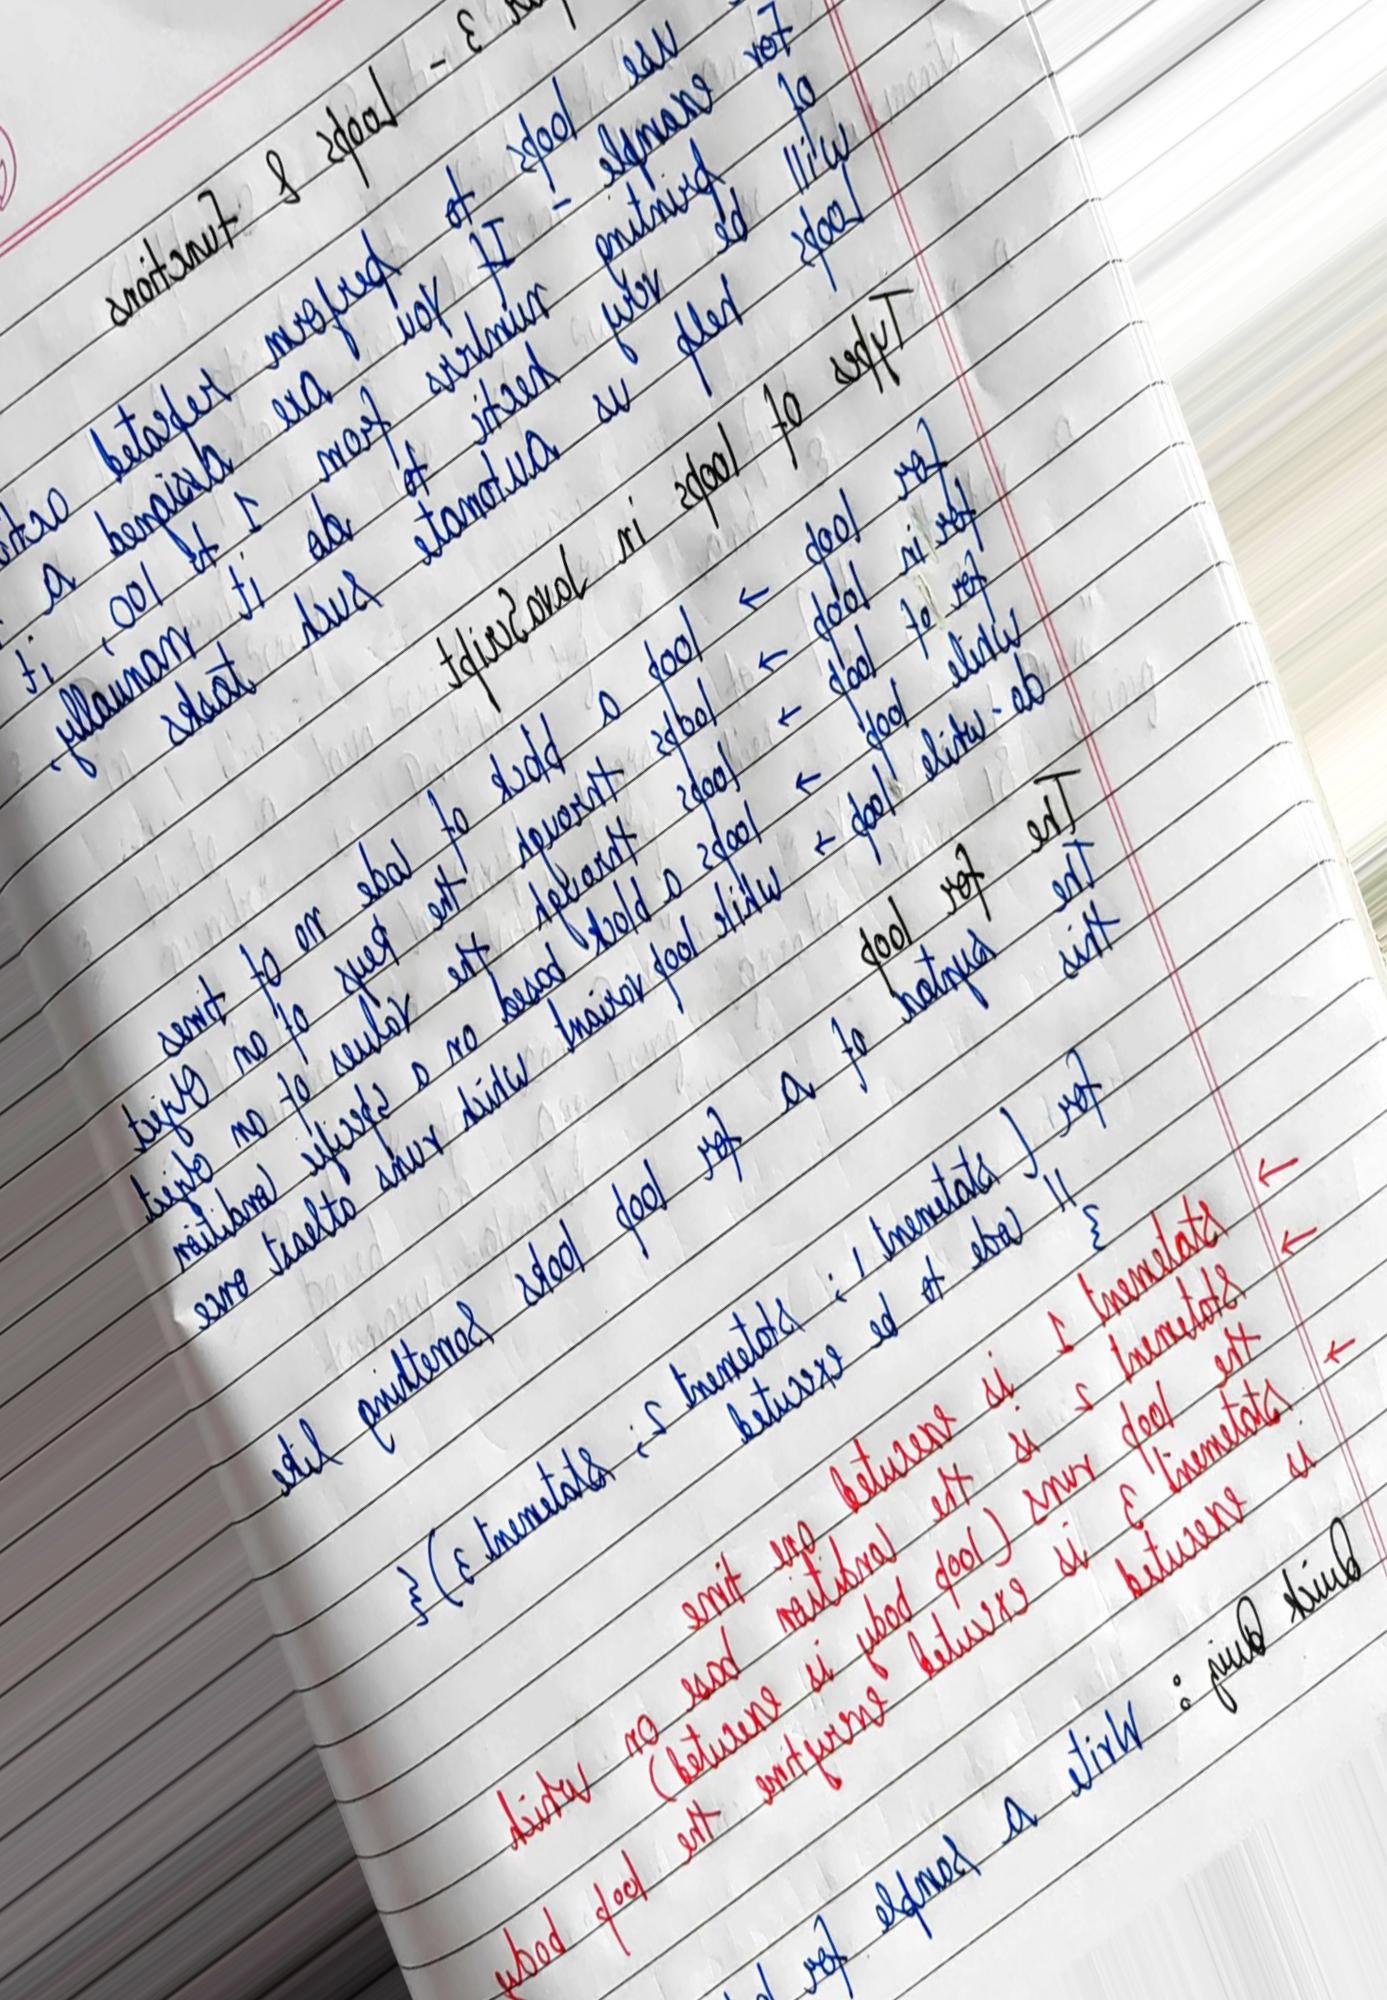 3 - Loops & Functions
use loops to perform repeated
For example - If you are assigned a
of printing numbers from 1 to 100, it
will be very hectic to do it manually,
Loops help us automate such tasks
Types of loops in JavaScript
for loop → loop a block of code no of times
for in loop → loops through the keys of an Object
for of loop → loops through the values of an Object
while loop → loops a block based on a specific condition
do-while loop → while loop variant which runs atleast once
The for loop
The syntax of a for loop looks something like
this
for ( statement 1 ; statement 2 ; statement 3 ) {
// code to be executed
}
→ Statement 1 is executed one time
→ Statement 2 is the condition base on which
the loop runs (loop body is executed)
→ Statement 3 is executed everytime the loop body
is executed
Quick Quiz : Write a sample for